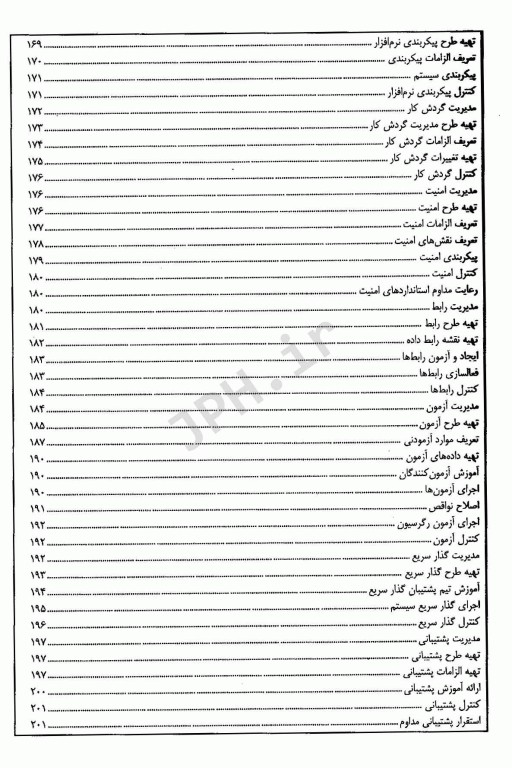 تهیه طرح پیکربندی نرم‌افزار ۱۶۹
تعریف الزامات پیکربندی ۱۷۰
پیکربندی سیستم ۱۷۱
کنترل پیکربندی نرم‌افزار ۱۷۱
مدیریت گردش کار ۱۷۲
تهیه طرح مدیریت گردش کار ۱۷۳
تعریف الزامات گردش کار ۱۷۴
تهیه تغییرات گردش کار ۱۷۵
کنترل گردش کار ۱۷۶
مدیریت امنیت ۱۷۶
تهیه طرح امنیت ۱۷۶
تعریف الزامات امنیت ۱۷۷
تعریف نقش‌های امنیت ۱۷۸
پیکربندی امنیت ۱۷۹
کنترل امنیت ۱۸۰
رعایت مداوم استانداردهای امنیت ۱۸۰
مدیریت رابط ۱۸۰
تهیه طرح رابط ۱۸۱
تهیه نقشه رابط داده ۱۸۲
ایجاد و آزمون رابط‌ها ۱۸۳
فعالسازی رابط‌ها ۱۸۳
کنترل رابط‌ها ۱۸۴
مدیریت آزمون ۱۸۴
تهیه طرح آزمون ۱۸۵
تعریف موارد آزمودنی ۱۸۷
تهیه داده‌های آزمون ۱۹۰
آموزش آزمون‌کنندگان ۱۹۰
اجرای آزمون‌ها ۱۹۰
اصلاح نواقص ۱۹۱
اجرای آزمون رگرسیون ۱۹۲
کنترل آزمون ۱۹۲
مدیریت گذار سریع ۱۹۲
تهیه طرح گذار سریع ۱۹۳
آموزش تیم پشتیبان گذار سریع ۱۹۴
اجرای گذار سریع سیستم ۱۹۵
کنترل گذار سریع ۱۹۶
مدیریت پشتیبانی ۱۹۷
تهیه طرح پشتیبانی ۱۹۷
تهیه الزامات پشتیبانی ۱۹۷
ارائه آموزش پشتیبانی ۲۰۰
کنترل پشتیبانی ۲۰۱
استقرار پشتیبانی مداوم ۲۰۱
JPH.ir